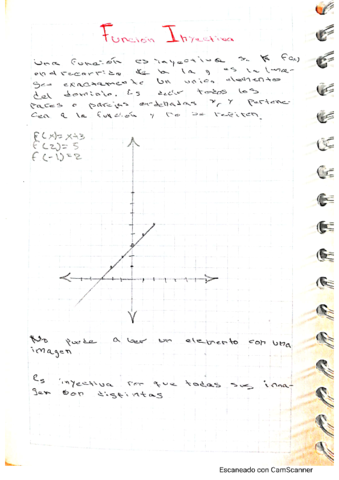 Función Inyectiva
Una función es inyectiva si f(x)
en el recorrido de la es la ima-
gen exactamente un único elemento
del dominio. Es decir todos los
pares o parejas ordenadas x, y pertene-
cen a la función y no se repiten.
f(x)=x+3
f(2)=5
f(-1)=2
No puede a ber un elemento con una
imagen
Es inyectiva por que todas sus ima-
gen son distintas
Escaneado con CamScanner